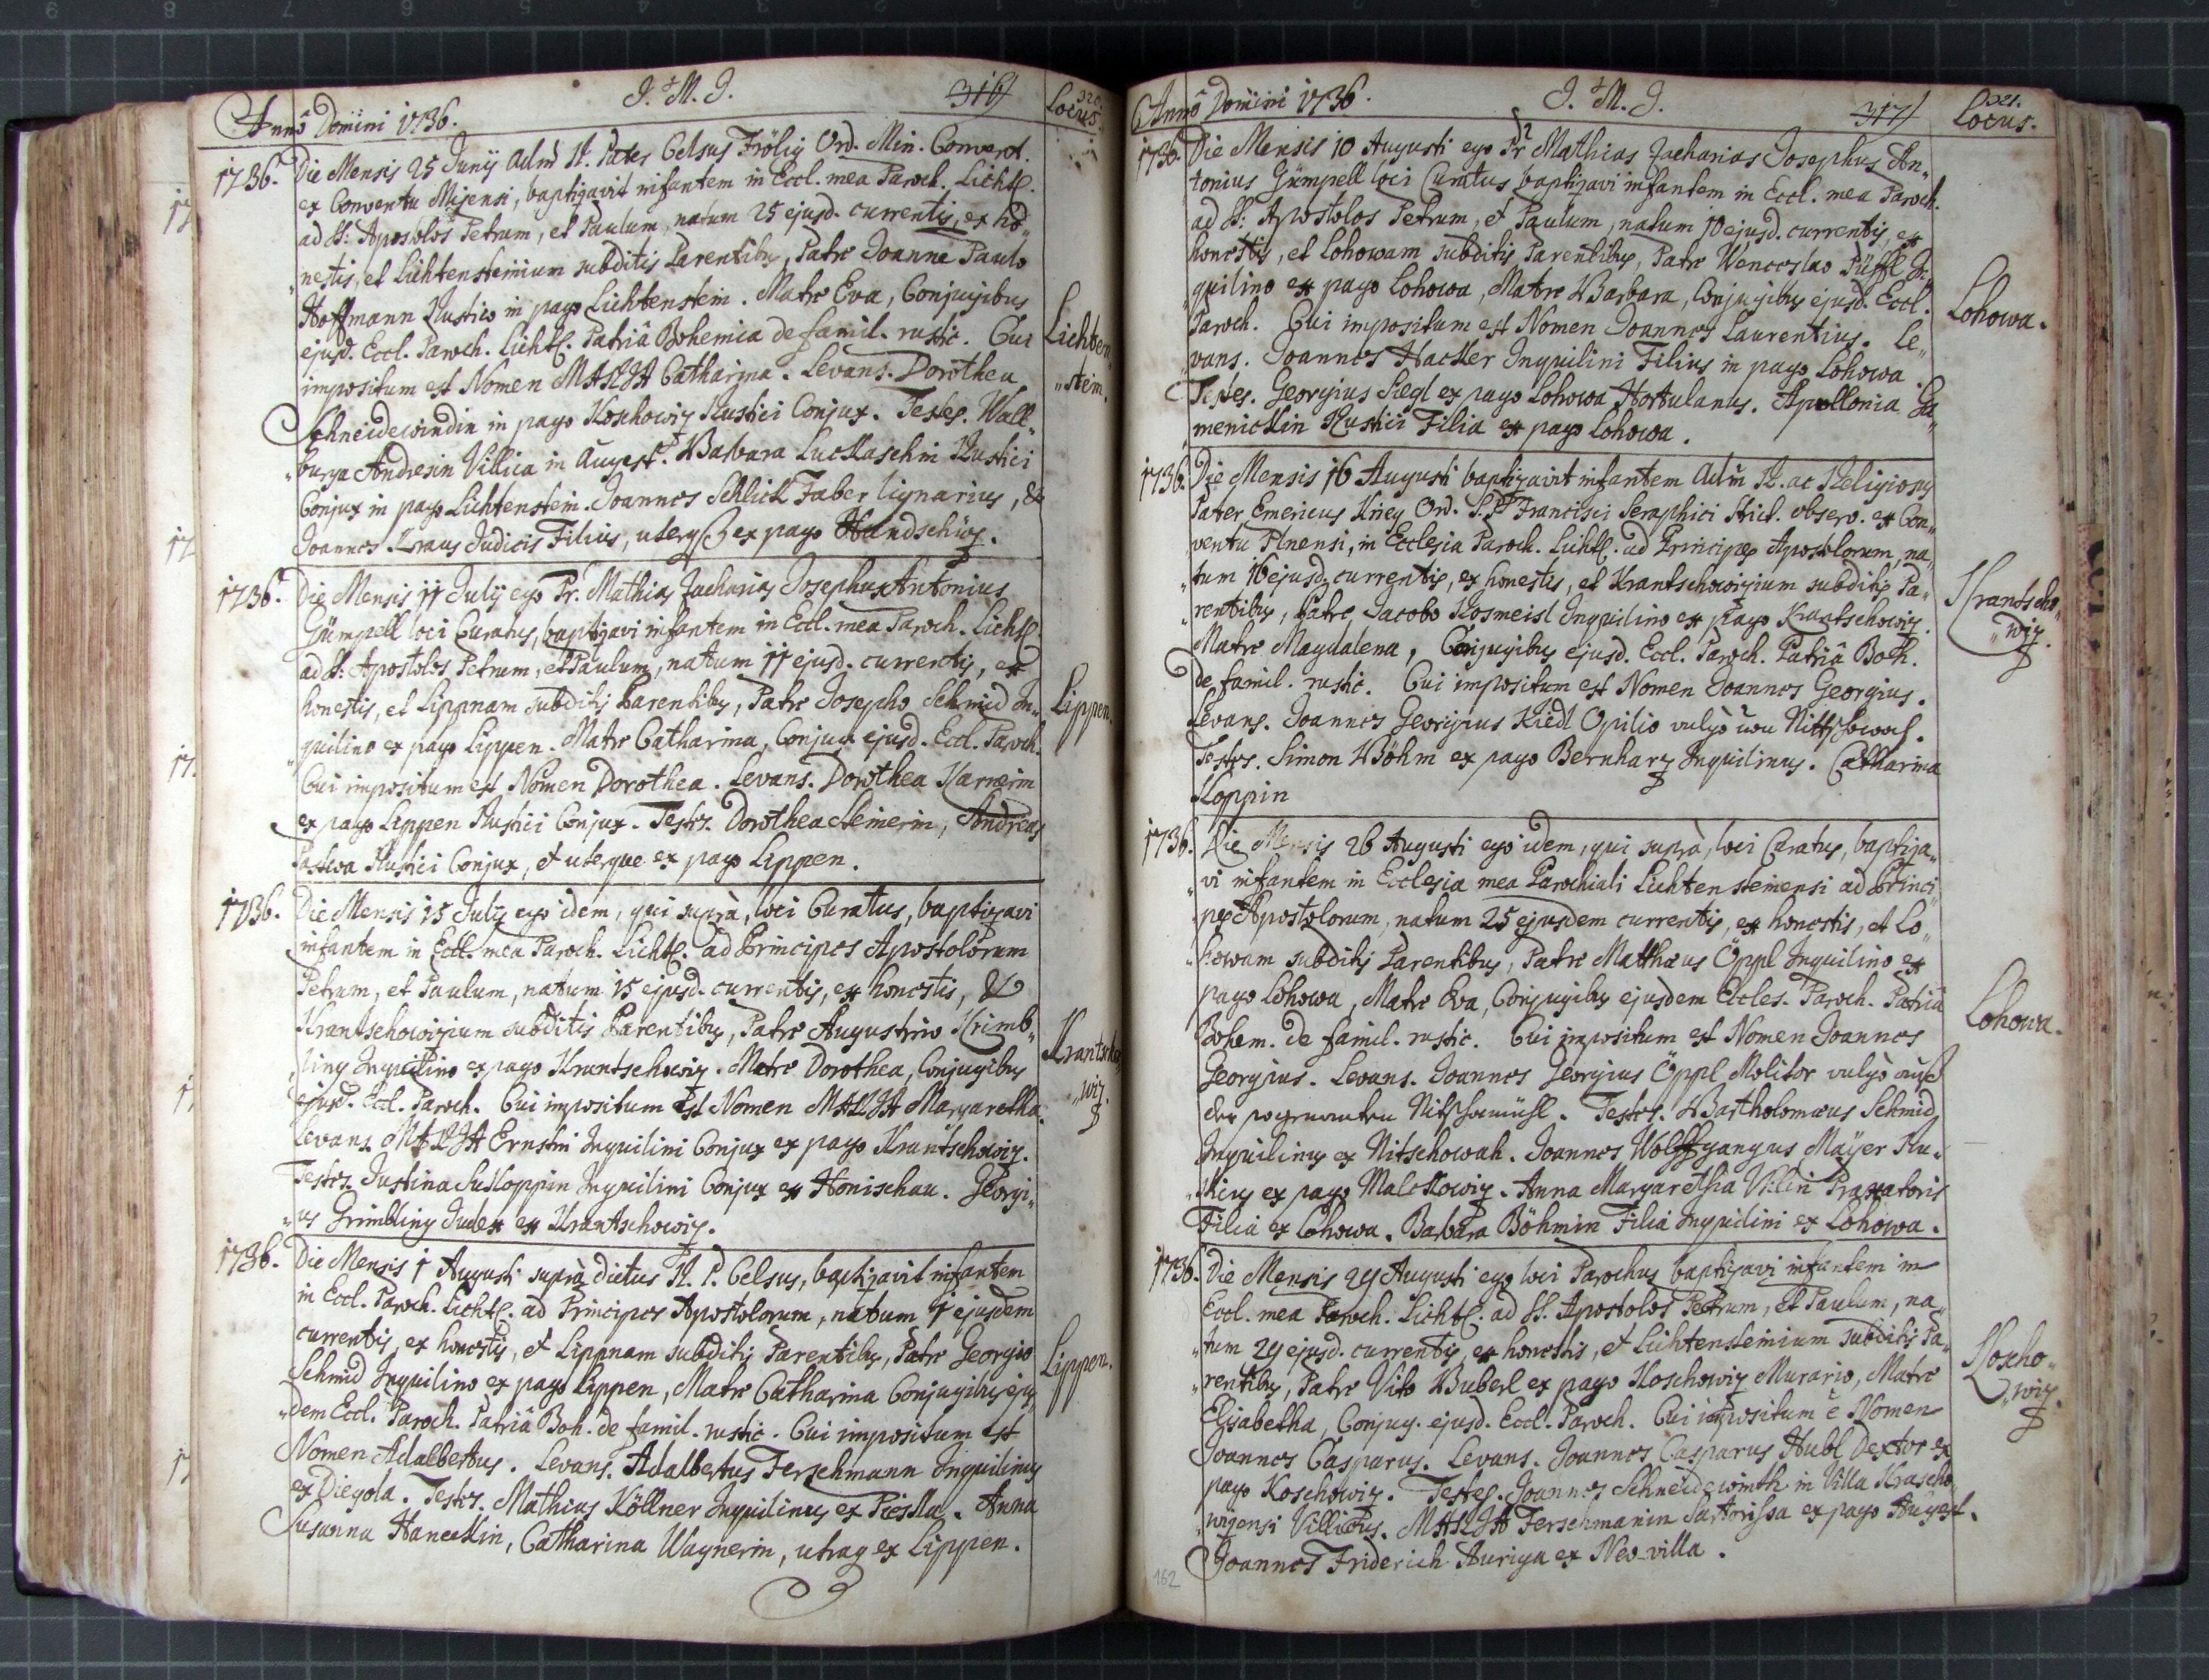 Annô Domini 1736. J. M. J. 316 320.
Locus.
1736. Die Mensis 25 Junij Adm R. Pater Celsus Frölig Ord. Min. Convent.
ex Conventu Misensi, baptizavit infantem in Eccl. mea Paroch. Licht.
ad SS: Apostolos Petrum, et Paulum, natum 25 ejusd. currentis, ex ho„
„nestis, et Lichtensteinium subditis Parentibus, Patre Joanne Paulo
Hoffmann Rustico in pago Lichtenstein. Matre Eva, Conjugibus
ejusd. Eccl. Paroch. Licht. Patriâ Bohemica de famil. rustic. Cui
impositum est Nomen MARIA Catharina. Levans. Dorothea
Schneidewindin in pago Koschowiz Rustici Conjux. Testes. Wall„
„burga Andresin Villica in Augest. Barbara Luckaschin Rustici
Conjux in pago Lichtenstein. Joannes Schlick Faber lignarius, &
Joannes Kraus Judicis Filius, uterq ex pago Hundschüz.
Lichten„
„stein.
1736. Die Mensis 11 Julij ego Pr. Mathias Zacharias Josephus Antonius
Gümpell loci Curatus, baptizavi infantem in Eccl. mea Paroch. Licht.
ad SS: Apostolos Petrum, et Paulum, natum 11 ejusd. currentis, ex
honestis, et Lippnam subditis Parentibus, Patre Josepho Schmid In„
„quilino ex pago Lippen. Matre Catharina, Conjux ejusd. Eccl. Paroch.
Cui impositum est Nomen Dorothea. Levans. Dorothea Harnerin
ex pago Lippen Rustici Conjux. Testes. Dorothea Steinerin, Andreas
Rustici Conjux, et uterque ex pago Lippen.
Lippen.
1736. Die Mensis 15 Julij ego idem, qui suprà, loci Curatus, baptizavi
infantem in Eccl. mea Paroch. Licht. ad Principes Apostolorum
Petrum, et Paulum, natum 15 ejusd. currentis, ex honestis, &
Krantschowizium subditis Parentibus, Patre Augustino Krimb„
„ling Inquilino ex pago Krantschowiz. Matre Dorothea, Conjugibus
ejusd. Eccl. Paroch. Cui impositum est Nomen MARIA Margaretha.
Levans. MARIA Ernstin Inquilini Conjux ex pago Krantschowiz.
Testes. Justina Sukloppin Inquilini Conjux ex Honischau. Georgi„
„us Grimbling Judex ex Krantschowiz.
Krantscho„
„wiz.
1736. Die Mensis 1 Augusti suprà dictus R. P. Celsus, baptizavit infantem
in Eccl. Paroch. Licht. ad Principes Apostolorum, natum 1 ejusdem
currentis, ex honestis, et Lippnam subditis Parentibus, Patre Georgio
Schmid Inquilino ex pago Lippen, Matre Catharina Conjugibus ejus„
„dem Eccl. Paroch. Patriâ Boh. de famil. rustic. Cui impositum est
Nomen Adalbertus. Levans. Adalbertus Ferschmann Inquilinus
ex Diegola. Testes. Mathias Köllner Inquilinus ex Piesska. Anna
Susanna Haneckin, Catharina Wagnerin, utraq ex Lippen.
Lippen.
Annô Domini 1736. J. M. J. 317 321.
Locus.
1736. Die Mensis 10 Augusti ego Pr Mathias Zacharias Josephus An„
tonius Gümpell loci Curatus baptizavi infantem in Eccl. mea Paroch.
ad SS: Apostolos Petrum, et Paulum, natum 10 ejusd. currentis, ex
honestis, et Lohowam subditis Parentibus, Patre Wenceslao Püffl In„
„quilino ex pago Lohowa, Matre Barbara, Conjugibus ejusd. Eccl.
Paroch. Cui impositum est Nomen Joannes Laurentius. Le„
„vans. Joannes Hacker Inquilini Filius in pago Lohowa.
Testes. Georgius Siegl ex pago Lohowa Hortulanus. Apollonia Ga„
„menickin Rustici Filia ex pago Lohowa.
Lohowa.
1736. Die Mensis 16 Augusti baptizavit infantem Adm R. ac Religiosus
Pater Emericus Krieg Ord. S. P. Francisci Seraphici Strict. observ. ex Con„
ventu Plnensi, in Ecclesia Paroch. Licht. ad Principes Apostolorum, na„
„tum 16 ejusd. currentis, ex honestis, et Krantschowizium subditis Pa„
„rentibus, Patre Jacobo Kosmeisl Inquilino ex pago Krantschowiz.
Matre Magdalena, Conjugibus ejusd. Eccl. Paroch. Patriâ Boh.
de famil. rustic. Cui impositum est Nomen Joannes Georgius.
Levans. Joannes Georgius Kiedl Opilio vulgò von Nittschowa.
Testes. Simon Böhm ex pago Bernharz Inquilinus. Catharina
Kloppin
Krantscho„
„wiz.
1736. Die Mensis 26 Augusti ego idem, qui suprà, loci Curatus, baptiza„
„vi infantem in Ecclesia mea Parochiali Lichtensteinensi ad Princi„
pes Apostolorum, natum 25 ejusdem currentis, ex honestis, et Lo„
„howam subditis Parentibus, Patre Matthæus Öppl Inquilino ex
pago Lohowa, Matre Eva, Conjugibus ejusdem Eccles. Paroch. Patriâ
Bohem. de famil. rustic. Cui impositum est Nomen Joannes
Georgius. Levans. Joannes Georgius Öppl Molitor vulgò auß
der sogenanten Nitschamühl. Testes. Bartholomæus Schmid
Inquilinus ex Nitschowah. Joannes Wolffgangus Maÿer Ru„
„sticus ex pago Malckowiz. Anna Margaretha Villin Praxatoris
Filia ex Lohowa. Barbara Böhmin Filia Inquilini ex Lohowa.
Lohowa.
1736. Die Mensis 29 Augusti ego loci Parochus baptizavi infantem in
Eccl. mea Paroch. Licht. ad SS. Apostolos Petrum, et Paulum, na„
„tum 29 ejusd. currentis, ex honestis, et Lichtensteinium subditis Pa„
„rentibus, Patre Vito Buberl ex pago Koschowiz Murario, Matre
Elisabetha, Conjug. ejusd. Eccl. Paroch. Cui impositum ê Nomen
Joannes Casparus. Levans. Joannes Casparus Hubl Textor ex
pago Koschowiz. Testes. Joannes Schneidewinth in Villa Krascho„
„wizensi Villicus. MARIA Ferschmanin Sartorissa ex pago Augest.
Joannes Friderich Auriga ex Neo-villa.
Koscho„
„wiz.
162